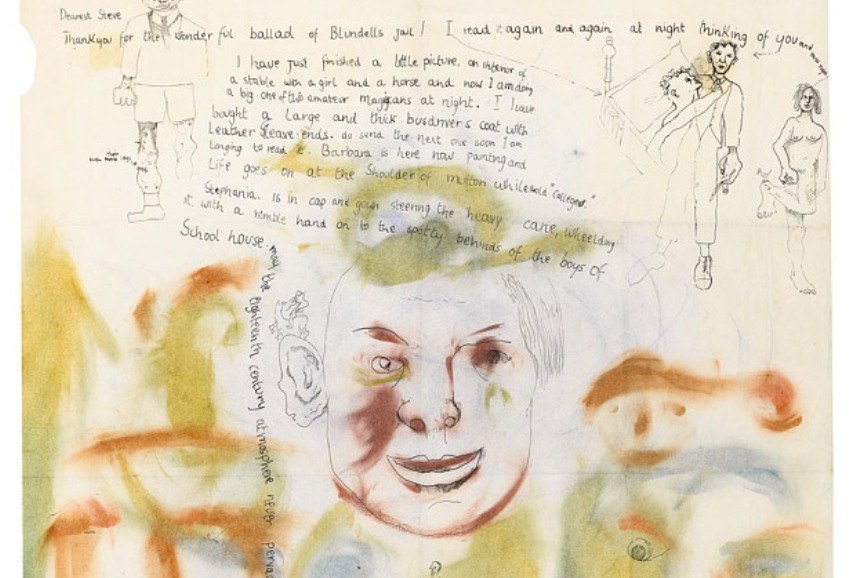 Dearest Steve
Thankyou for the wonderful ballad of Blundells jail! I read it again and again at night thinking of you
I have just finished a little picture, an interior of
a stable with a girl and a horse and now I am doing
a big one of two amateur magicians at night. I have
bought a Large and thick busdriver's coat with
Leather sleave-ends. do send the next one soon I am
Longing to read it. Barbara is here now painting and
Life goes on at the Shoulder of mutton while old "Collegeus"
Stephania. is in cap and gown steering the heavy cane, wheelding
it with a nimble hand on to the spotty behinds of the boys of
School house. may the eighteenth century atmosphere never